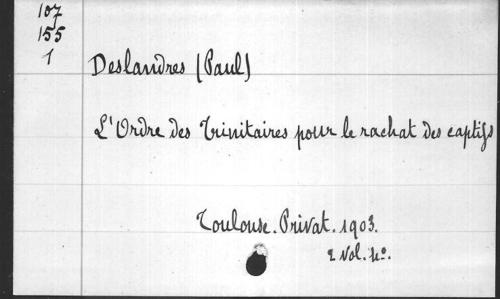 107
155
1
Deslandres (Paul)
L'Ordre des Trinitaires pour le rachat des captifs
Toulouse. Privat. 1903.
2 vol. 4º.